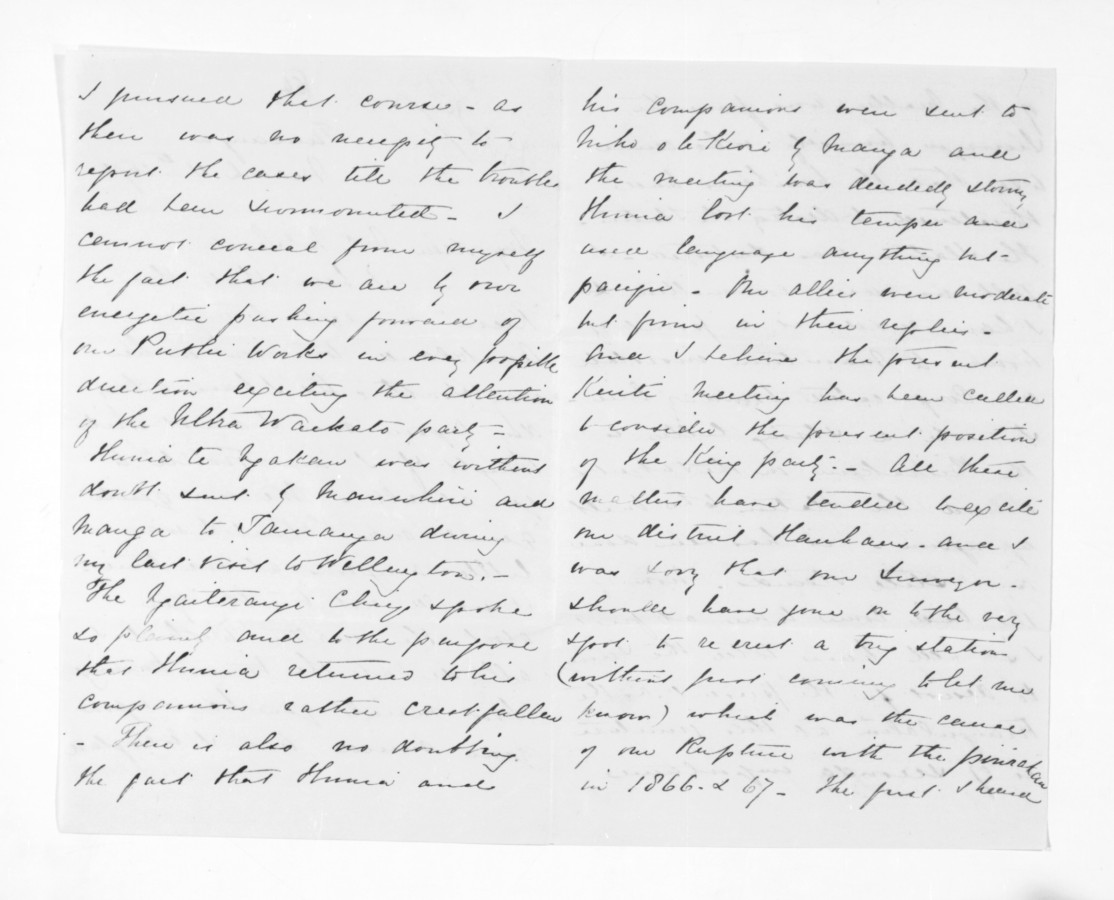 I pursued that course - as
there was no necessity to
report the cases till the troubles
had been surmounted - I
cannot conceal from myself
the fact that we are by our
energetic pushing forward of
our Public Works in every possible
direction exciting the attention
of the Ultra Waikato party -
Hunia te Ngakau was without
doubt sent by Manuhiri and
Manga to Tauranga during
my last visit to Wellington. -
The Ngaiterangi Chiefs spoke
so plainly and to the purpose
that Hunia returned to his
companions rather crestfallen
- There is also no doubting
the fact that Hunia and
his companions were sent to
by Manga and
the meeting was decidedly stormy
Hunia lost his temper and
used language anything but -
pacific - Our allies were moderate
but firm in their replies -
and I believe the present
Kuiti meeting has been called
to consider the present position
of the King party. - All these
matters have tended to excite
our district Hauhaus - and I
was sorry that our Surveyor -
should have gone on to the very
spot to re erect a trig station
(without first coming to let me
know) which was the cause
of our Rupture with the Pirirakau
in 1866 - & 67 - The first I heard